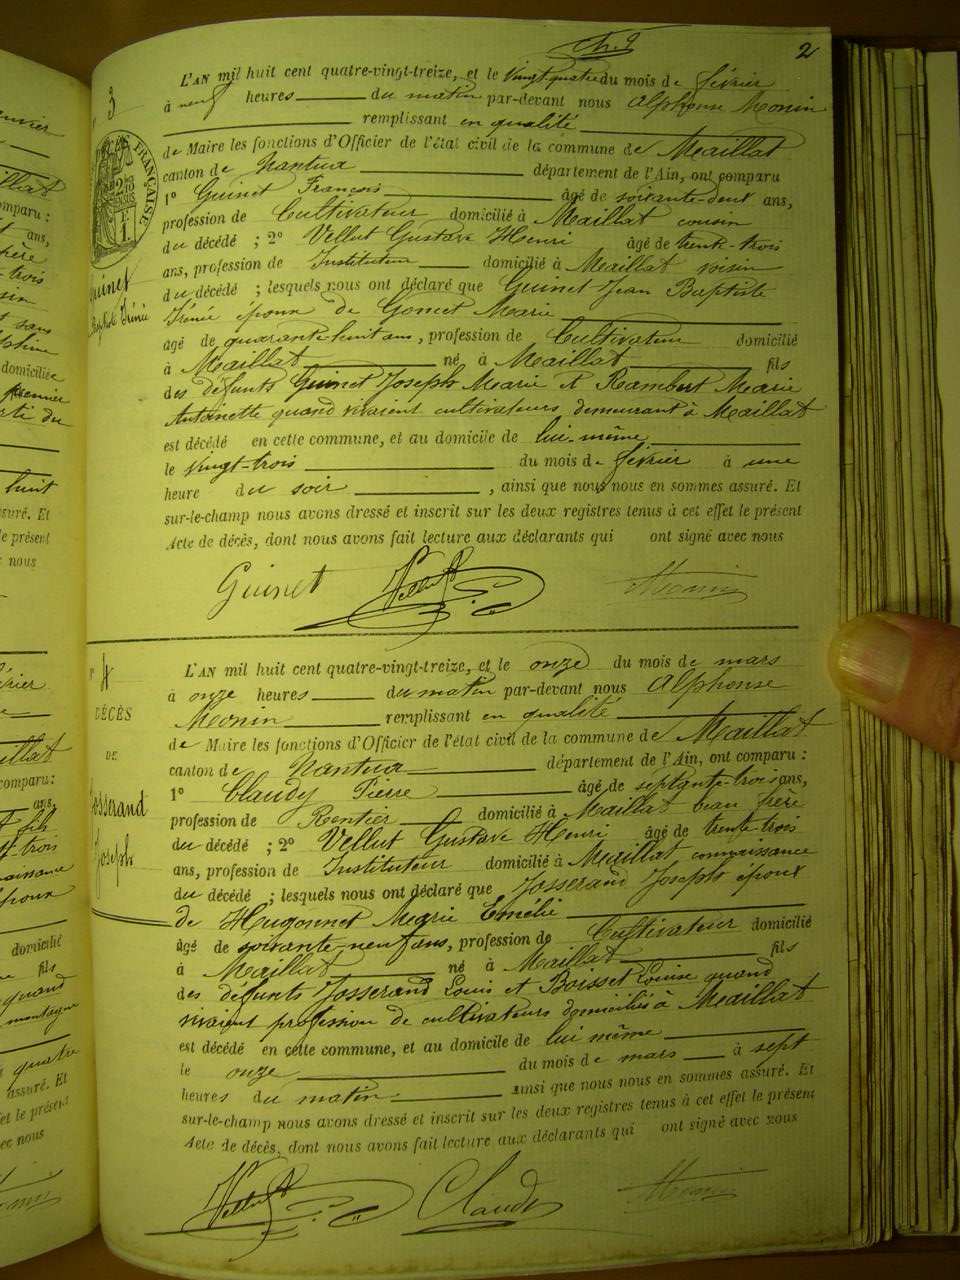 2
3
L'AN mil huit cent quatre-vingt-treize, et le vingt quatre du mois de février
à neuf heures du matin par-devant nous Alphonse Monin
remplissant en qualité
de Maire les fonctions d'Officier de l'état civil de la commune de Maillat
canton de Nantua département de l'Ain, ont comparu
1° Guinet François âgé de soixante-deux ans,
profession de Cultivateur domicilié à Maillat cousin
du décédé ; 2° Vellut Gustave Henri âgé de trente-trois
ans, profession de Instituteur domicilié à Maillat voisin
du décédé ; lesquels nous ont déclaré que Guinet Jean Baptiste
Irénée époux de Goncet Marie
âgé de quarante-huit ans, profession de Cultivateur domicilié
à Maillat né à Maillat fils
des défunts Guinet Joseph Marie et Rambert Marie
Antoinette quand vivaient cultivateurs demeurant à Maillat
est décédé en cette commune, et au domicile de lui-même
le vingt-trois du mois de février à une
heure du soir , ainsi que nous nous en sommes assuré. Et
sur-le-champ nous avons dressé et inscrit sur les deux registres tenus à cet effet le présent
Acte de décès, dont nous avons fait lecture aux déclarants qui ont signé avec nous
Guinet Vellut Monin
FRANÇAISE
Guinet
Irénée
N° 4
DÉCÈS
DE
Josserand
Joseph
L'AN mil huit cent quatre-vingt-treize, et le onze du mois de mars
à onze heures du matin par-devant nous Alphonse
Monin remplissant en qualité
de Maire les fonctions d'Officier de l'état civil de la commune de Maillat
canton de Nantua département de l'Ain, ont comparu :
1° Claudy Pierre âgé de septante-trois ans,
profession de Rentier domicilié à Maillat beau frère
du décédé ; 2° Vellut Gustave Henri âgé de trente-trois
ans, profession de Instituteur domicilié à Maillat connaissance
du décédé ; lesquels nous ont déclaré que Josserand Joseph époux
de Hugonnet Marie Emélie
âgé de soixante-neuf ans, profession de Cultivateur domicilié
à Maillat né à Maillat fils
des défunts Josserand Louis et Boisset Louise quand
vivaient profession de cultivateurs domiciliés à Maillat
est décédé en cette commune, et au domicile de lui même
le onze du mois de mars à sept
heures du matin ainsi que nous nous en sommes assuré. Et
sur-le-champ nous avons dressé et inscrit sur les deux registres tenus à cet effet le présent
Acte de décès, dont nous avons fait lecture aux déclarants qui ont signé avec nous
Vellut Claudy Monin